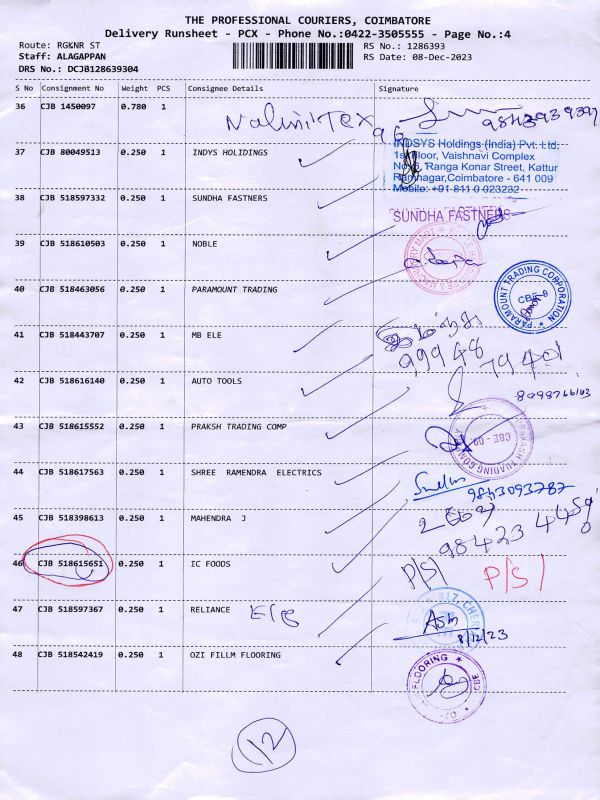 THE PROFESSIONAL COURIERS, COIMBATORE
Delivery Runsheet - PCX - Phone No.:0422-3505555 - Page No.:4
Route: RGKNR ST
RS No.: 1286393
Staff: ALAGAPPAN
RS Date: 08-Dec-2023
DRS No.: DCJB128639304
S No Consignment No Weight PCS Consignee Details Signature
36 CJB 1450097 0.780 1
37 CJB 80049513 0.250 1 INDYS HOLIDINGS
INDSYS Holdings (India) Pvt. Ltd.
1st Floor, Vaishnavi Complex
Ranga Konar Street, Kattur
Ramnagar, Coimbatore - 641 009
38 CJB 518597332 0.250 1 SUNDHA FASTNERS
SUNDHA FASTNERS
39 CJB 518610503 0.250 1 NOBLE
40 CJB 518463056 0.250 1 PARAMOUNT TRADING
PARAMOUNT TRADING CORPORATION
CBE-9
41 CJB 518443707 0.250 1 MB ELE
99948 79401
42 CJB 518616140 0.250 1 AUTO TOOLS
43 CJB 518615552 0.250 1 PRAKSH TRADING COMP
PRAKASH TRADING COMPANY
CBE - 09
44 CJB 518617563 0.250 1 SHREE RAMENDRA ELECTRICS
9843093787
45 CJB 518398613 0.250 1 MAHENDRA J
46 CJB 518615651 0.250 1 IC FOODS
P/S/ P/S/
47 CJB 518597367 0.250 1 RELIANCE
8/12/23
48 CJB 518542419 0.250 1 OZI FILLM FLOORING
FLOORING
12